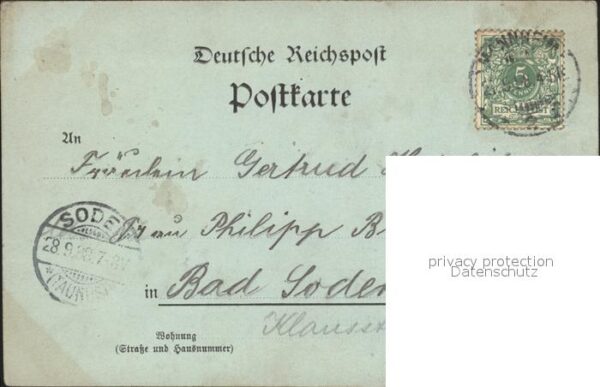 Deutsche Reichspost
Postkarte
5
REICHSPOST
An
Fräulein Gertrud
SODEN
28.9.98.7-8V.
*(TAUNUS)
Frau Philipp
privacy protection
Datenschutz
in Bad Soden
Klausst
Wohnung
(Straße und Hausnummer)